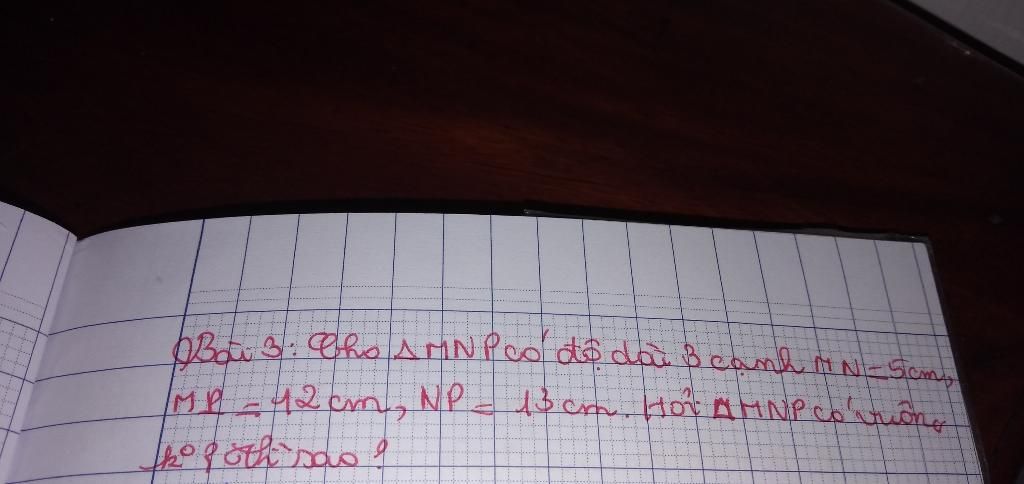 Bài 3: Cho Δ MNP có độ dài 3 cạnh MN = 5cm,
MP = 12 cm, NP = 13 cm. Hỏi Δ MNP có vuông
ko? sao?